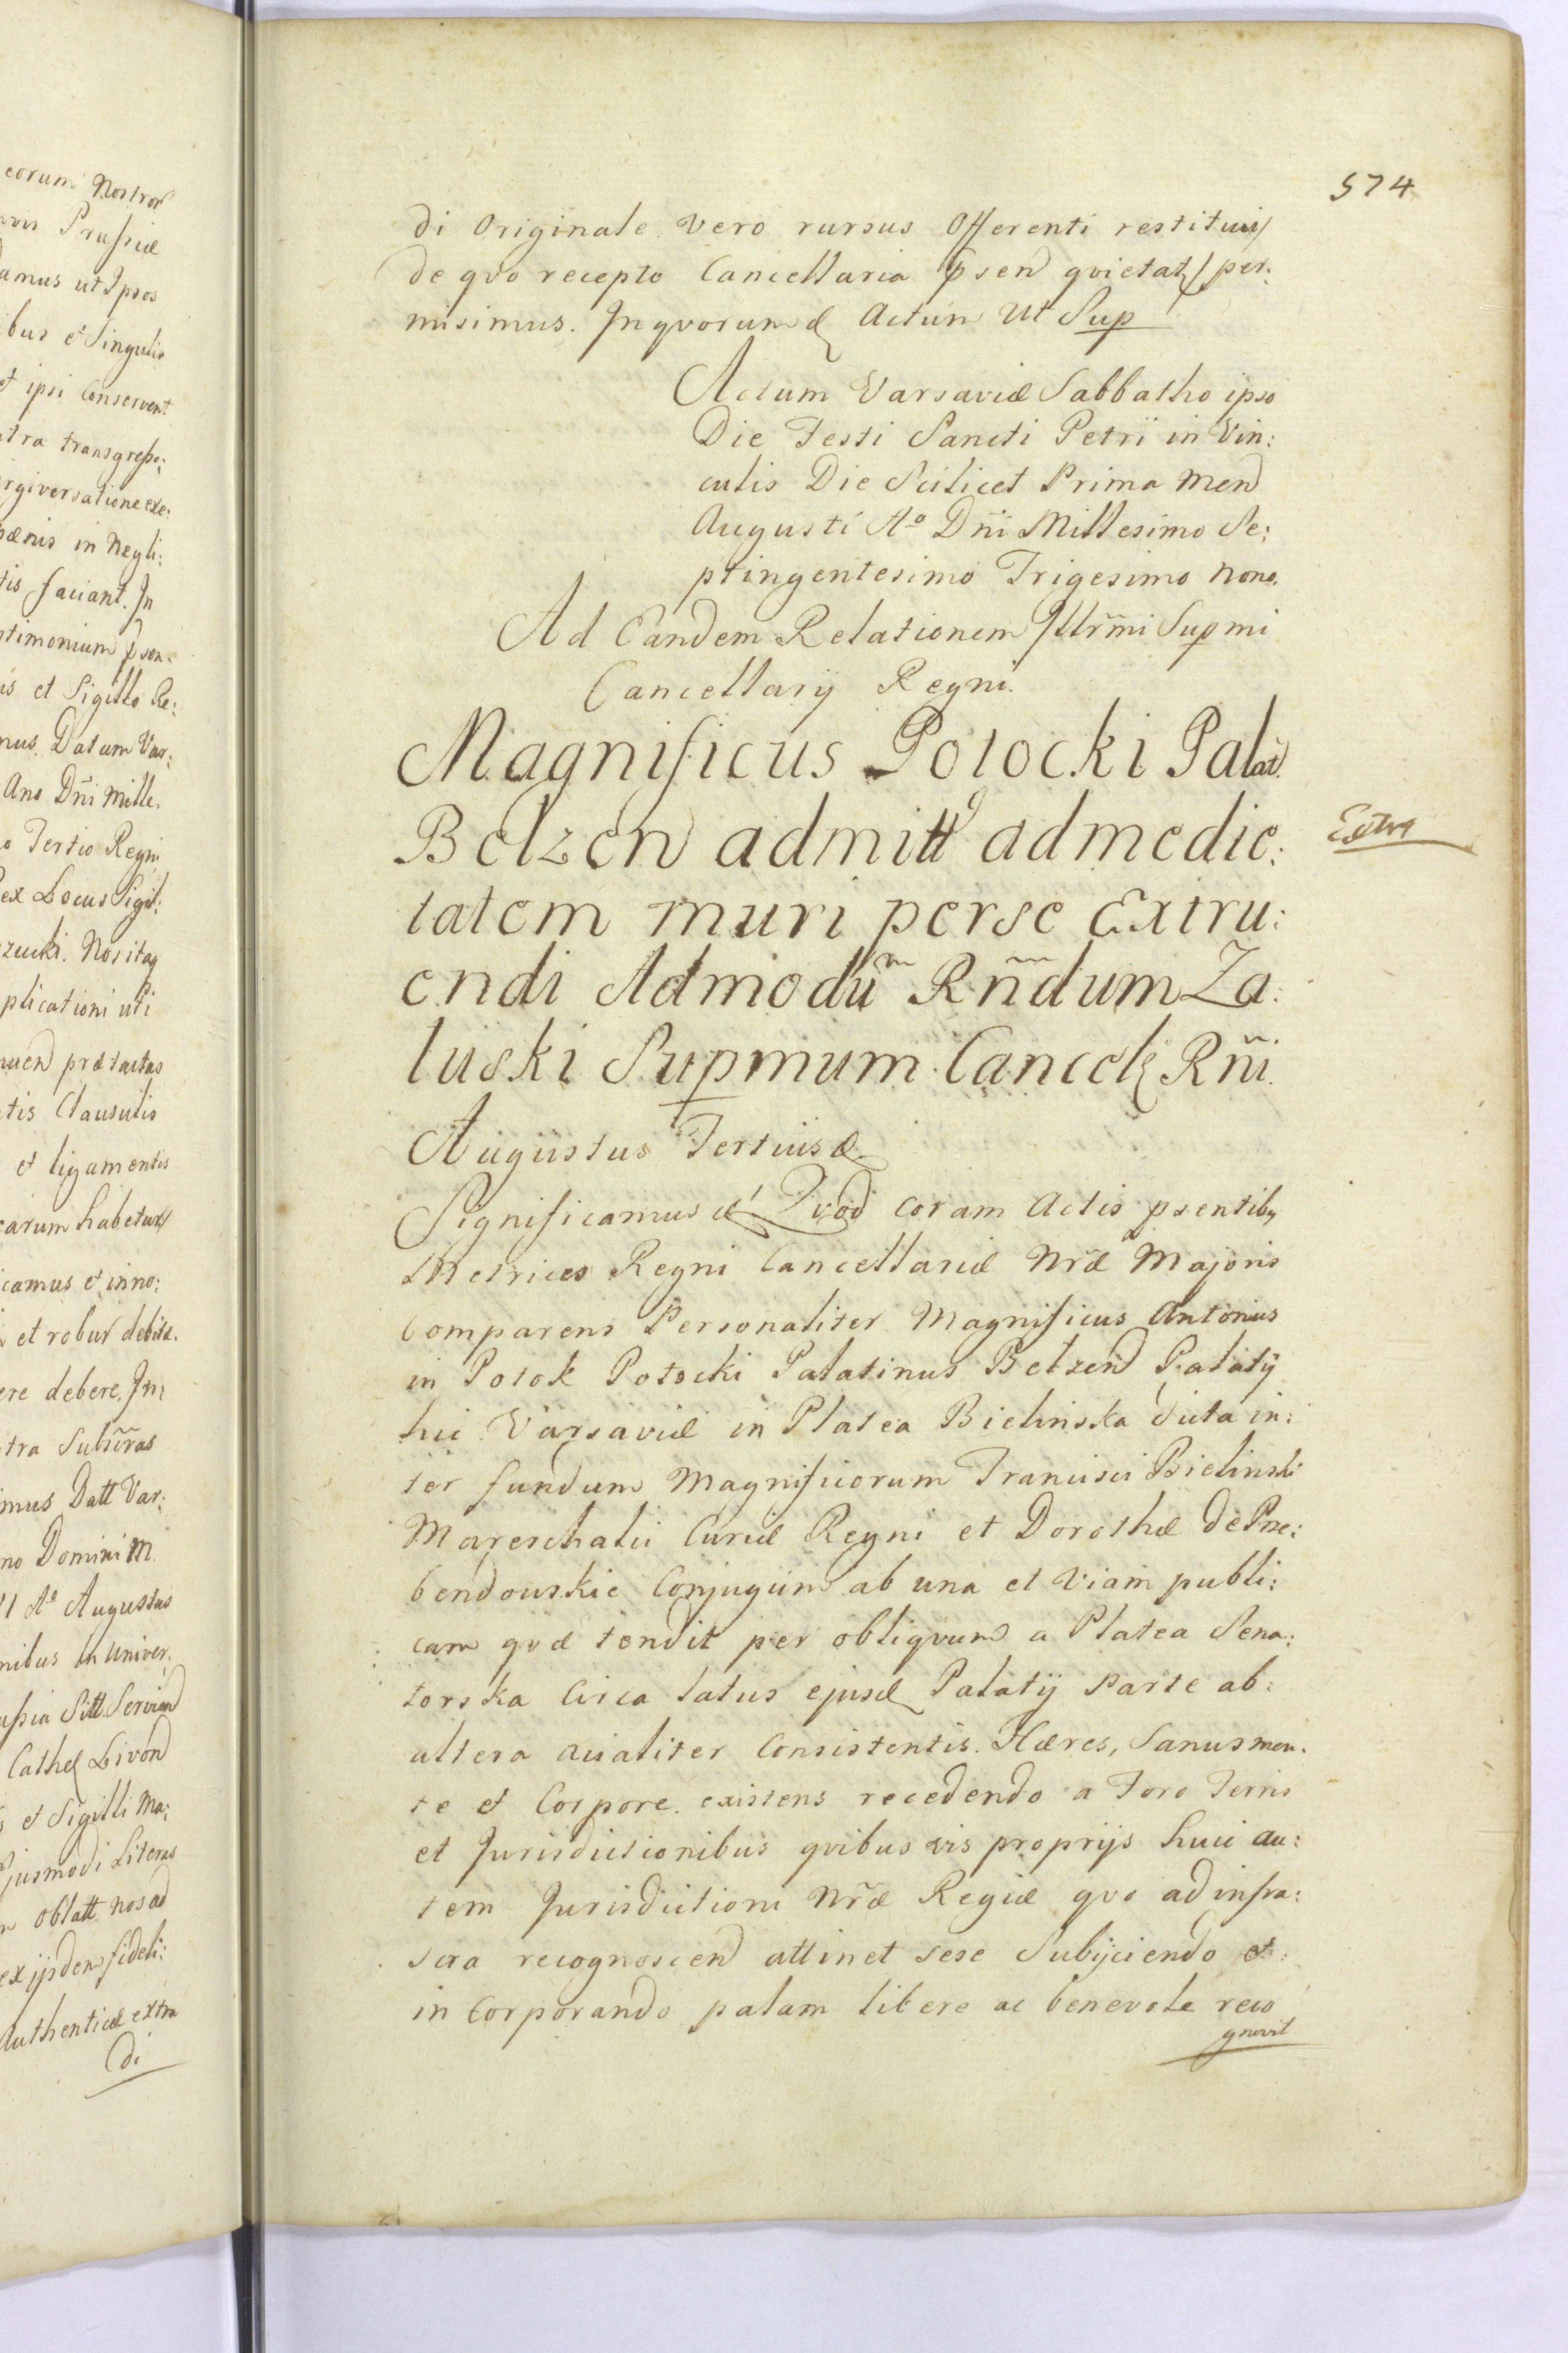 eorum Nostror
Prussiæ
amus ut Ipsos
ibus et Singulis
et ipsi Conservent
tra transgresso:
rgiversatione exe:
pænis in Negli:
tis faciant. In
stimonium psen:
is et Sigillo Re:
mus. Datum Var:
Ano Dñi Mille.
o Tertio Regni
Rex Locus Sigil:
Nos itaq
plicationi uti
prætactas
tis Clausulis
et ligamentis
earum habetur//
icamus et inno:
et robur debita.
ere debere. In:
tra Subscras
imus Datt Var:
no Domini M.
Ao Augustus
nibus in Univer:
ussia Sitt. Serviend
Cathed Livon
et Sigilli Ma:
Ejusmodi Literas
oblatt. nos ad
ex ijsdem fideli:
Authenticæ extra
di
574
di Originale vero rursus Offerenti restitui//
de qvo recepto Cancellaria psen qvietat// per:
misimus. In qvorum & Actum Ut Sup
Actum Varsaviæ Sabbatho ipso
Die Festi Sancti Petri in Vin:
culis Die Scilicet Prima Mens
Augusti Ao Dñi Millesimo Se:
ptingentesimo Trigesimo Nono.
Ad Eandem Relationem Illrmi Supmi
Cancellarij Regni.
Magnificus Potocki Palat.
Belzen admitt ad medie:
tatem muri per se Extru:
endi Admodum Rñdum Za:
luski Supmum Cancel Rñi.
Extra
Augustus Tertius &
Significamus & Qvod coram Actis psentibq
Metrices Regni Cancellariæ Nræ Majoris
Comparens Personaliter Magnificus Antonius
in Potok Potocki Palatinus Belzen Palatij
hic Varsaviæ in Platea Bielinska dicta in:
ter fundum Magnificorum Francisci Bielinski
Mareschalci Curiæ Regni et Dorothæ de Prze:
bendowskie Conjugum ab una et Viam publi:
cam qvæ tendit per obliqvum a Platea Sena:
torska Circa latus ejusd Palatij Parte ab
altera aialiter Consistentis. Hæres, Sanus men:
te et Corpore existens recedendo a Foro Terris
et Jurisdictionibus qvibus vis proprijs huic au:
tem Jurisdictioni Nræ Regiæ qvo ad infra:
scra recognoscend attinet sese Subijciendo et
in Corporando palam libere ac benevole reco
gnovit